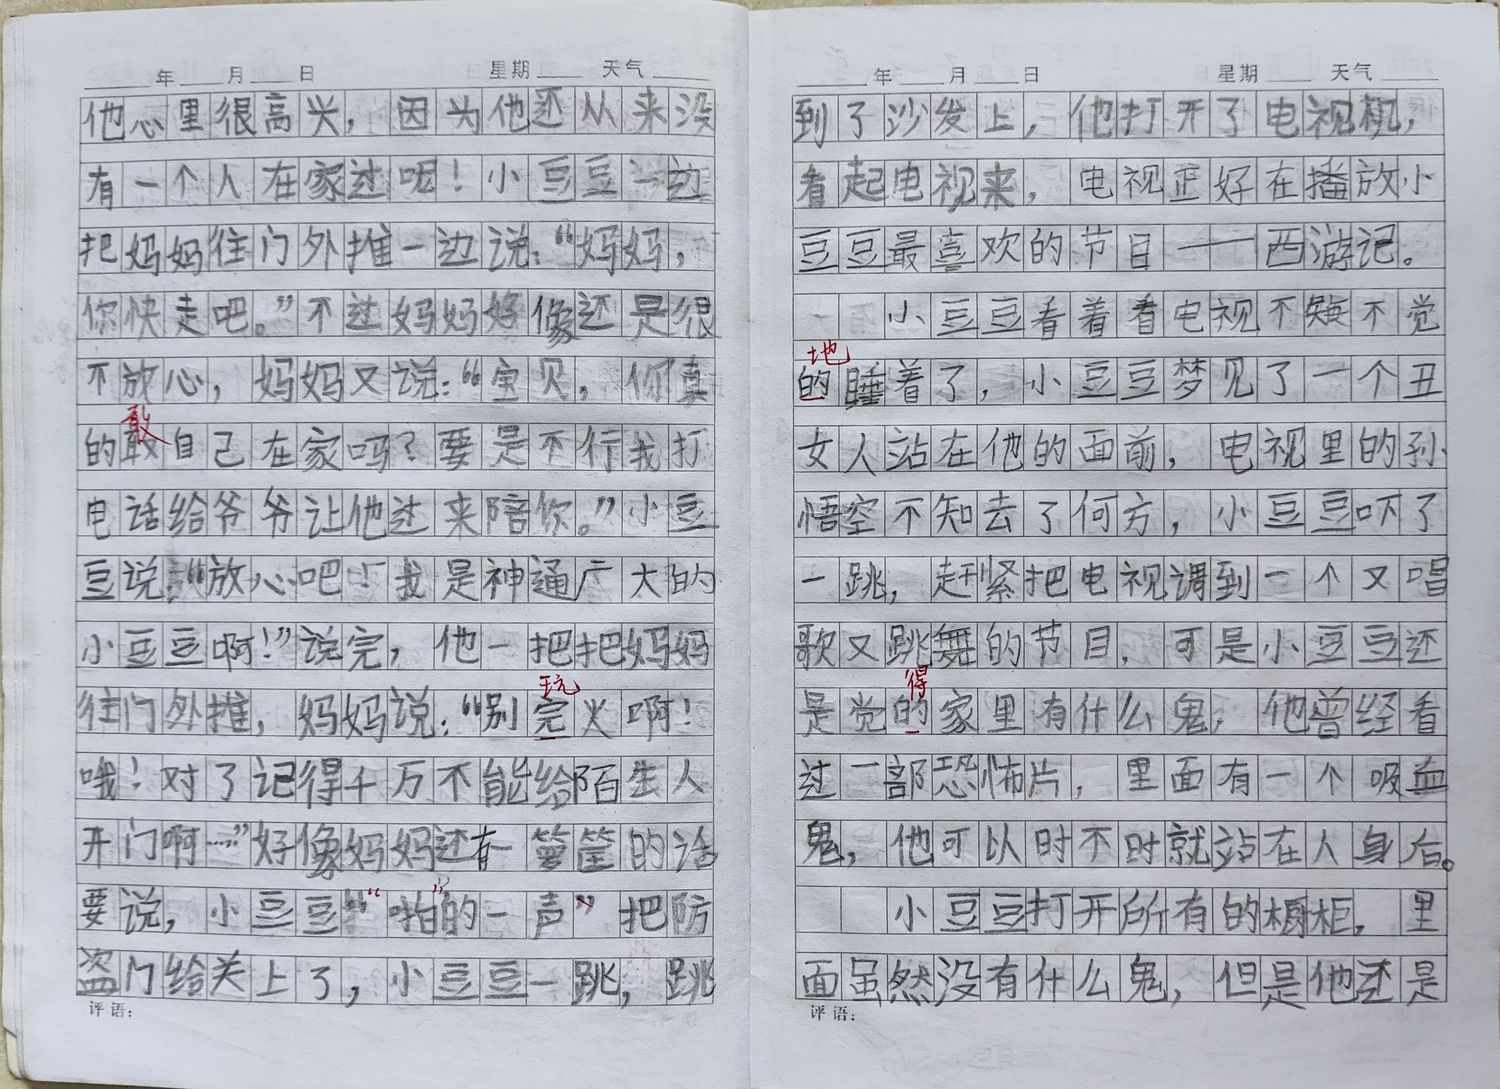 年 月 日 星期 天气
他心里很高兴，因为他还从来没
有一个人在家过呢！小豆豆一边
把妈妈往门外推一边说：“妈妈，
你快走吧。”不过妈妈好像还是很
不放心，妈妈又说：“宝贝，你真
敢
的敢自己在家吗？要是不行我打
电话给爷爷让他过来陪你。”小豆
豆说：“放心吧！我是神通广大的
小豆豆啊！”说完，他一把把妈妈
玩
往门外推，妈妈说：“别完火啊！
哦！对了记得千万不能给陌生人
开门啊……”好像妈妈还有一箩筐的话
要说，小豆豆““啪”的一声”把防
盗门给关上了，小豆豆一跳，跳
评语：
年 月 日 星期 天气
到了沙发上，他打开了电视机，
看起电视来，电视正好在播放小
豆豆最喜欢的节目——西游记。
小豆豆看着看电视不知不觉
地
的睡着了，小豆豆梦见了一个丑
女人站在他的面前，电视里的孙
悟空不知去了何方，小豆豆吓了
一跳，赶紧把电视调到一个又唱
歌又跳舞的节目，可是小豆豆还
得
是觉的家里有什么鬼，他曾经看
过一部恐怖片，里面有一个吸血
鬼，他可以时不时就站在人身后。
小豆豆打开所有的橱柜，里
面虽然没有什么鬼，但是他还是
评语：